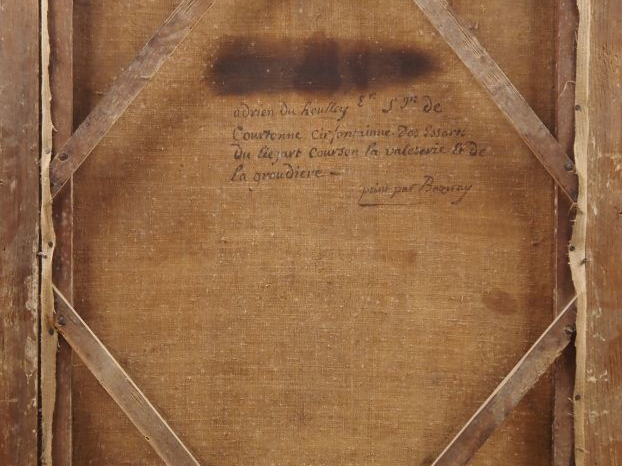 adrien du houlley Er Sgr de
Courtonne cirfontainne Des Essarts
Du liegart Courson la valeserie Et de
la groudiere
peint par